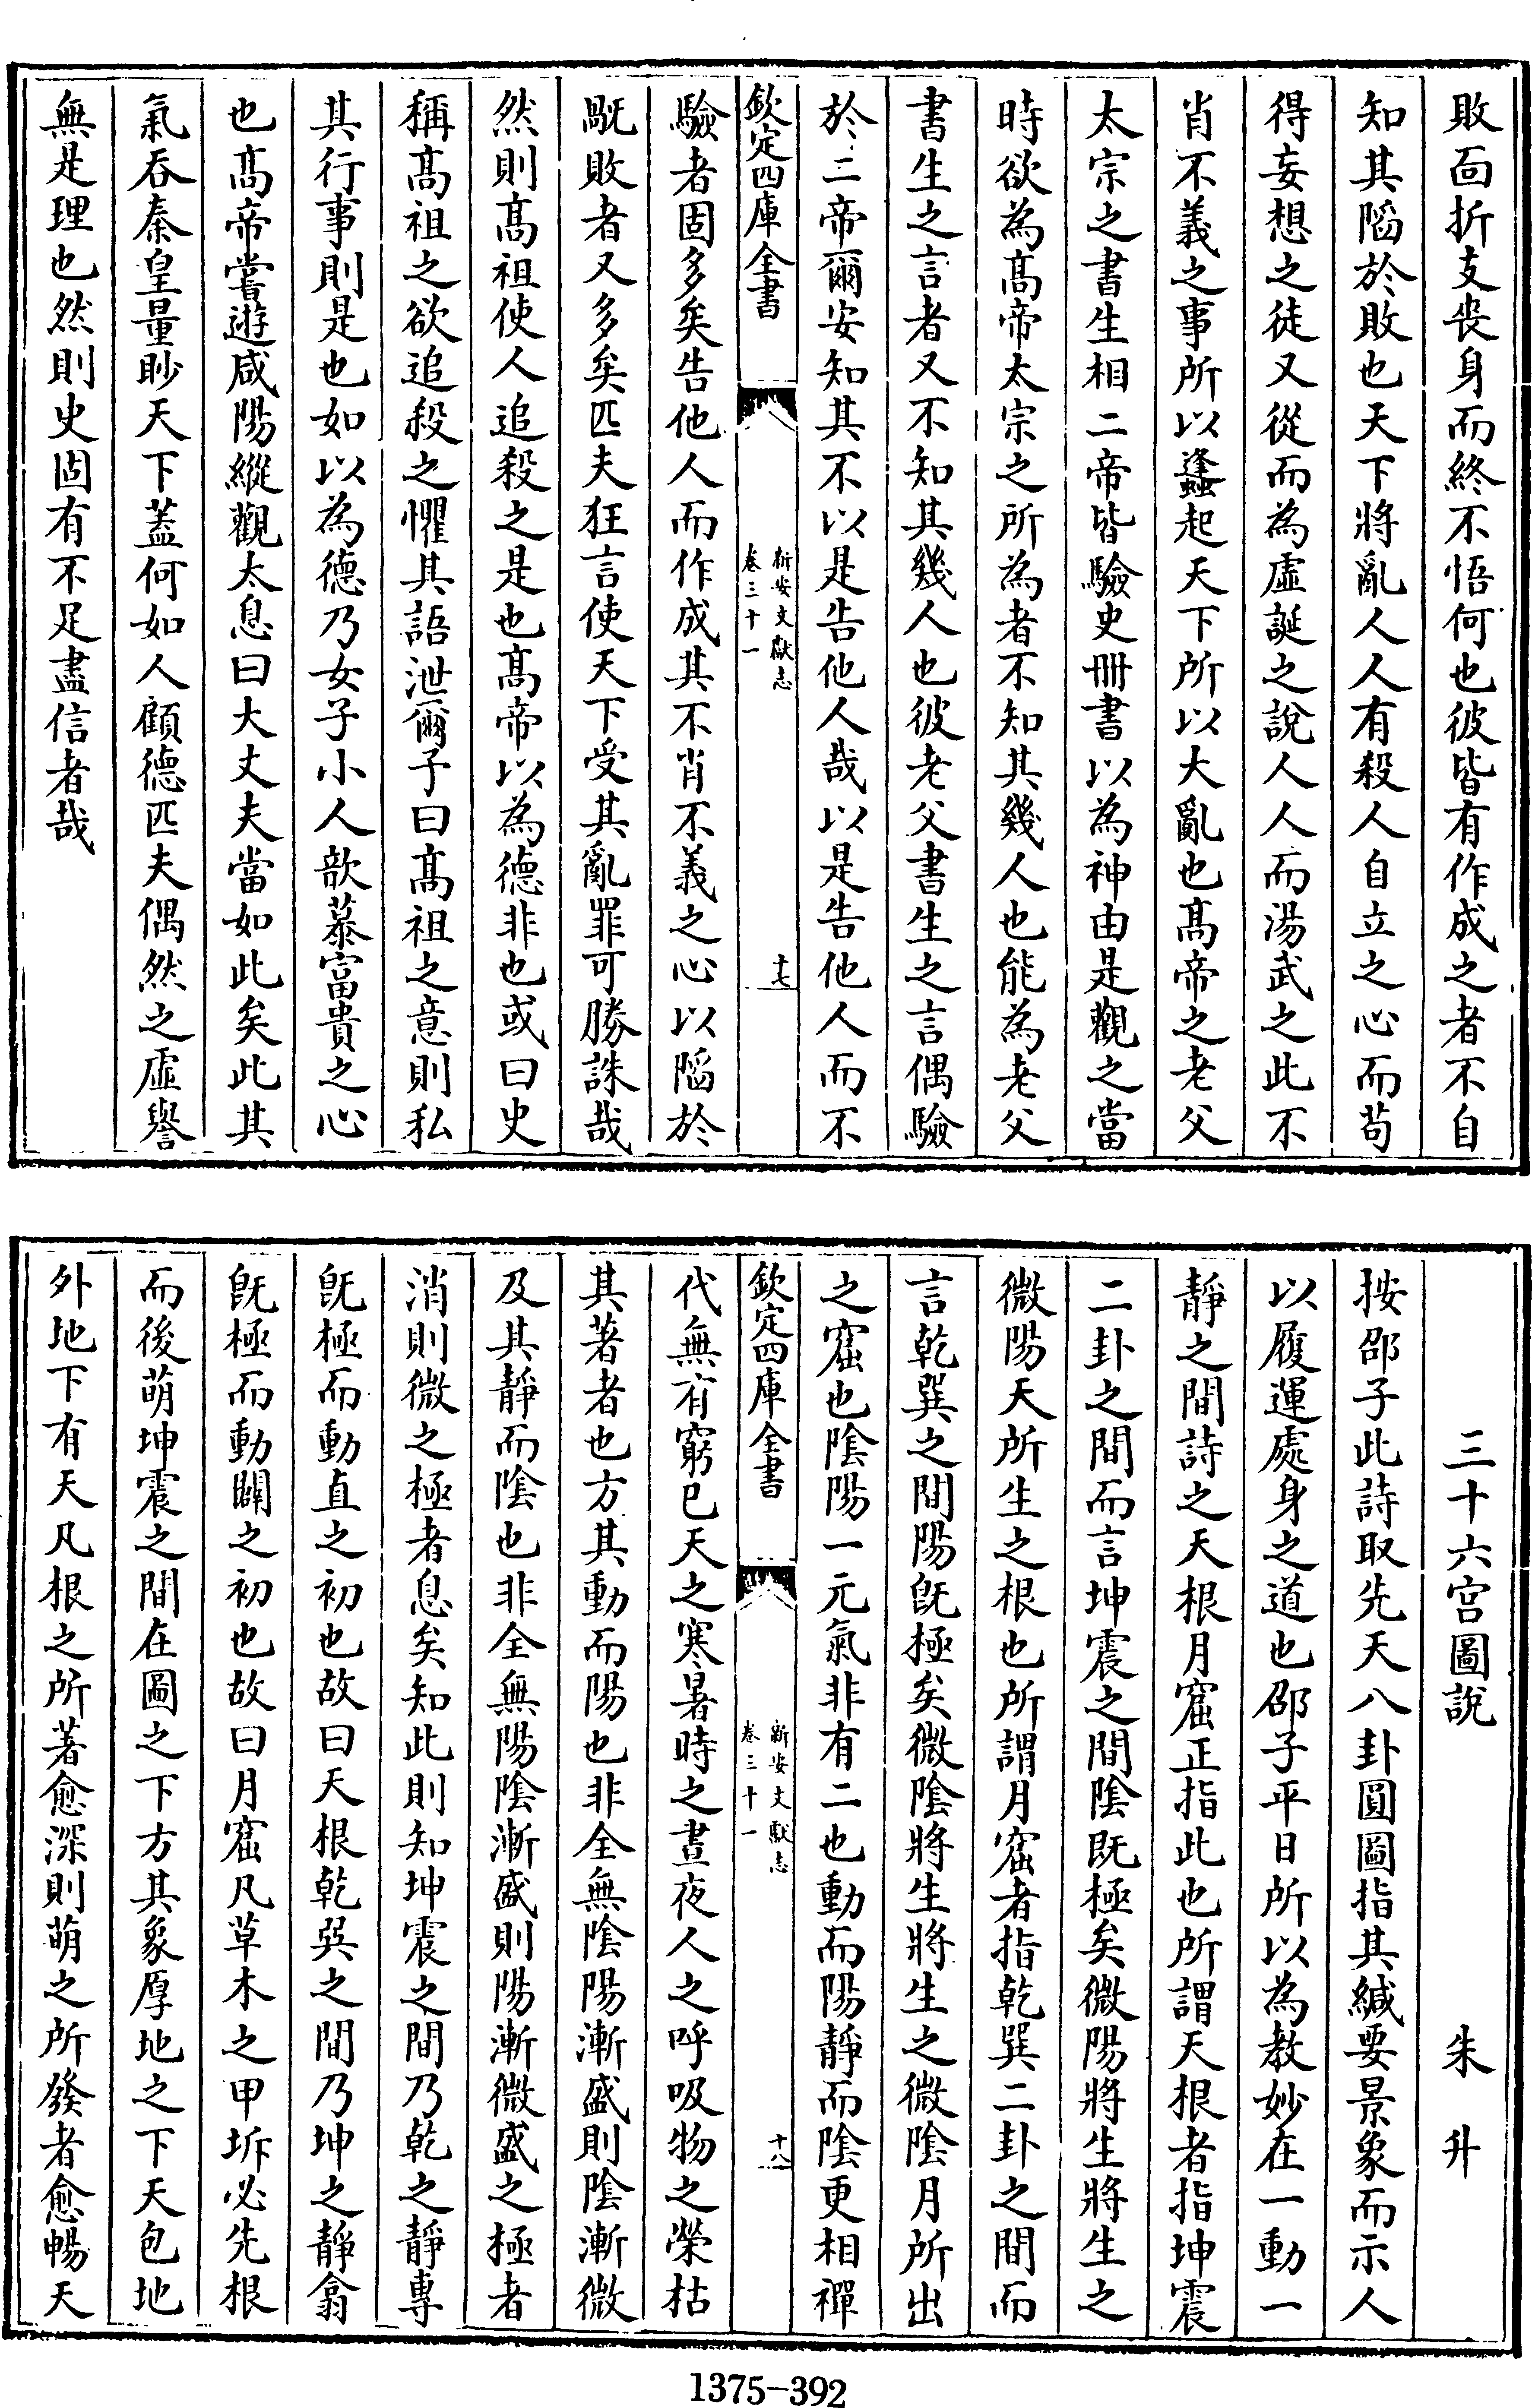 敗面折支喪身而終不悟何也彼皆有作成之者不自
知其陷於敗也天下將亂人人有殺人自立之心而苟
得妄想之徒又從而為虛誕之說人人而湯武之此不
肖不義之事所以蠭起天下所以大亂也髙帝之老父
太宗之書生相二帝皆驗史冊書以為神由是觀之當
時欲為髙帝太宗之所為者不知其幾人也能為老父
書生之言者又不知其幾人也彼老父書生之言偶驗
於二帝爾安知其不以是告他人哉以是告他人而不
欽定四庫全書
新安文獻志
卷三十一
十七
驗者固多矣告他人而作成其不肖不義之心以陷於
既敗者又多矣匹夫狂言使天下受其亂罪可勝誅哉
然則髙祖使人追殺之是也髙帝以為德非也或曰史
稱髙祖之欲追殺之懼其語泄爾子曰髙祖之意則私
其行事則是也如以為德乃女子小人歆慕富貴之心
也髙帝嘗遊咸陽縱觀太息曰大丈夫當如此矣此其
氣吞秦皇量眇天下蓋何如人顧德匹夫偶然之虛譽
無是理也然則史固有不足盡信者哉
三十六宫圖說　朱升
按邵子此詩取先天八卦圓圖指其緘要景象而示人
以履運處身之道也邵子平日所以為教妙在一動一
靜之間詩之天根月窟正指此也所謂天根者指坤震
二卦之間而言坤震之間陰既極矣微陽將生將生之
微陽天所生之根也所謂月窟者指乾巽二卦之間而
言乾巽之間陽既極矣微陰將生將生之微陰月所出
之窟也陰陽一元氣非有二也動而陽靜而陰更相禪
欽定四庫全書
新安文獻志
卷三十一
十八
代無有窮已天之寒暑時之晝夜人之呼吸物之榮枯
其著者也方其動而陽也非全無陰陽漸盛則陰漸微
及其靜而陰也非全無陽陰漸盛則陽漸微盛之極者
消則微之極者息矣知此則知坤震之間乃乾之靜專
既極而動直之初也故曰天根乾巽之間乃坤之靜翕
既極而動闢之初也故曰月窟凡草木之甲坼必先根
而後萌坤震之間在圖之下方其象厚地之下天包地
外地下有天凡根之所著愈深則萌之所發者愈暢天
1375-392